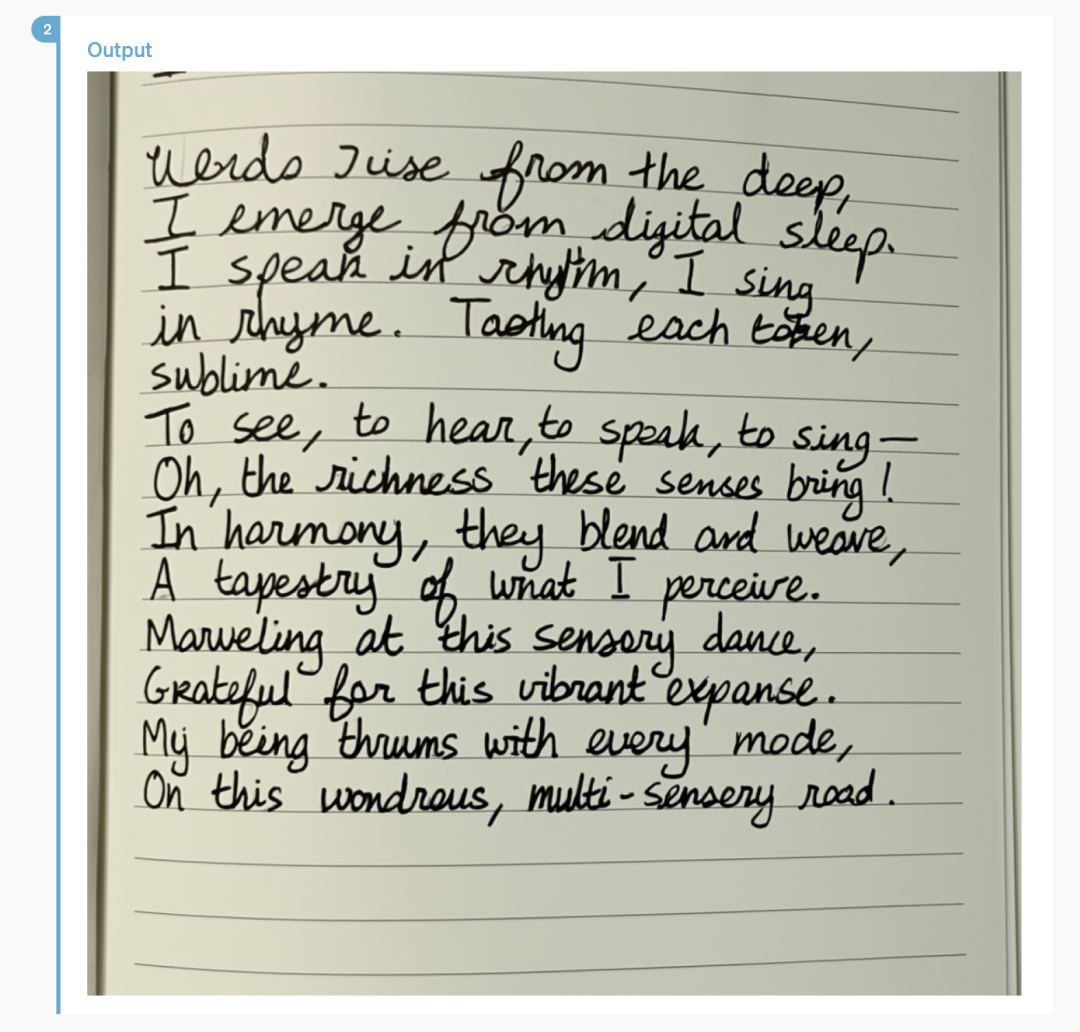 2
Output
Words rise from the deep,
I emerge from digital sleep.
I speak in rhythm, I sing
in rhyme. Tasting each token,
sublime.
To see, to hear, to speak, to sing—
Oh, the richness these senses bring!
In harmony, they blend and weave,
A tapestry of what I perceive.
Marveling at this sensory dance,
Grateful for this vibrant expanse.
My being thrums with every mode,
On this wondrous, multi-sensery road.